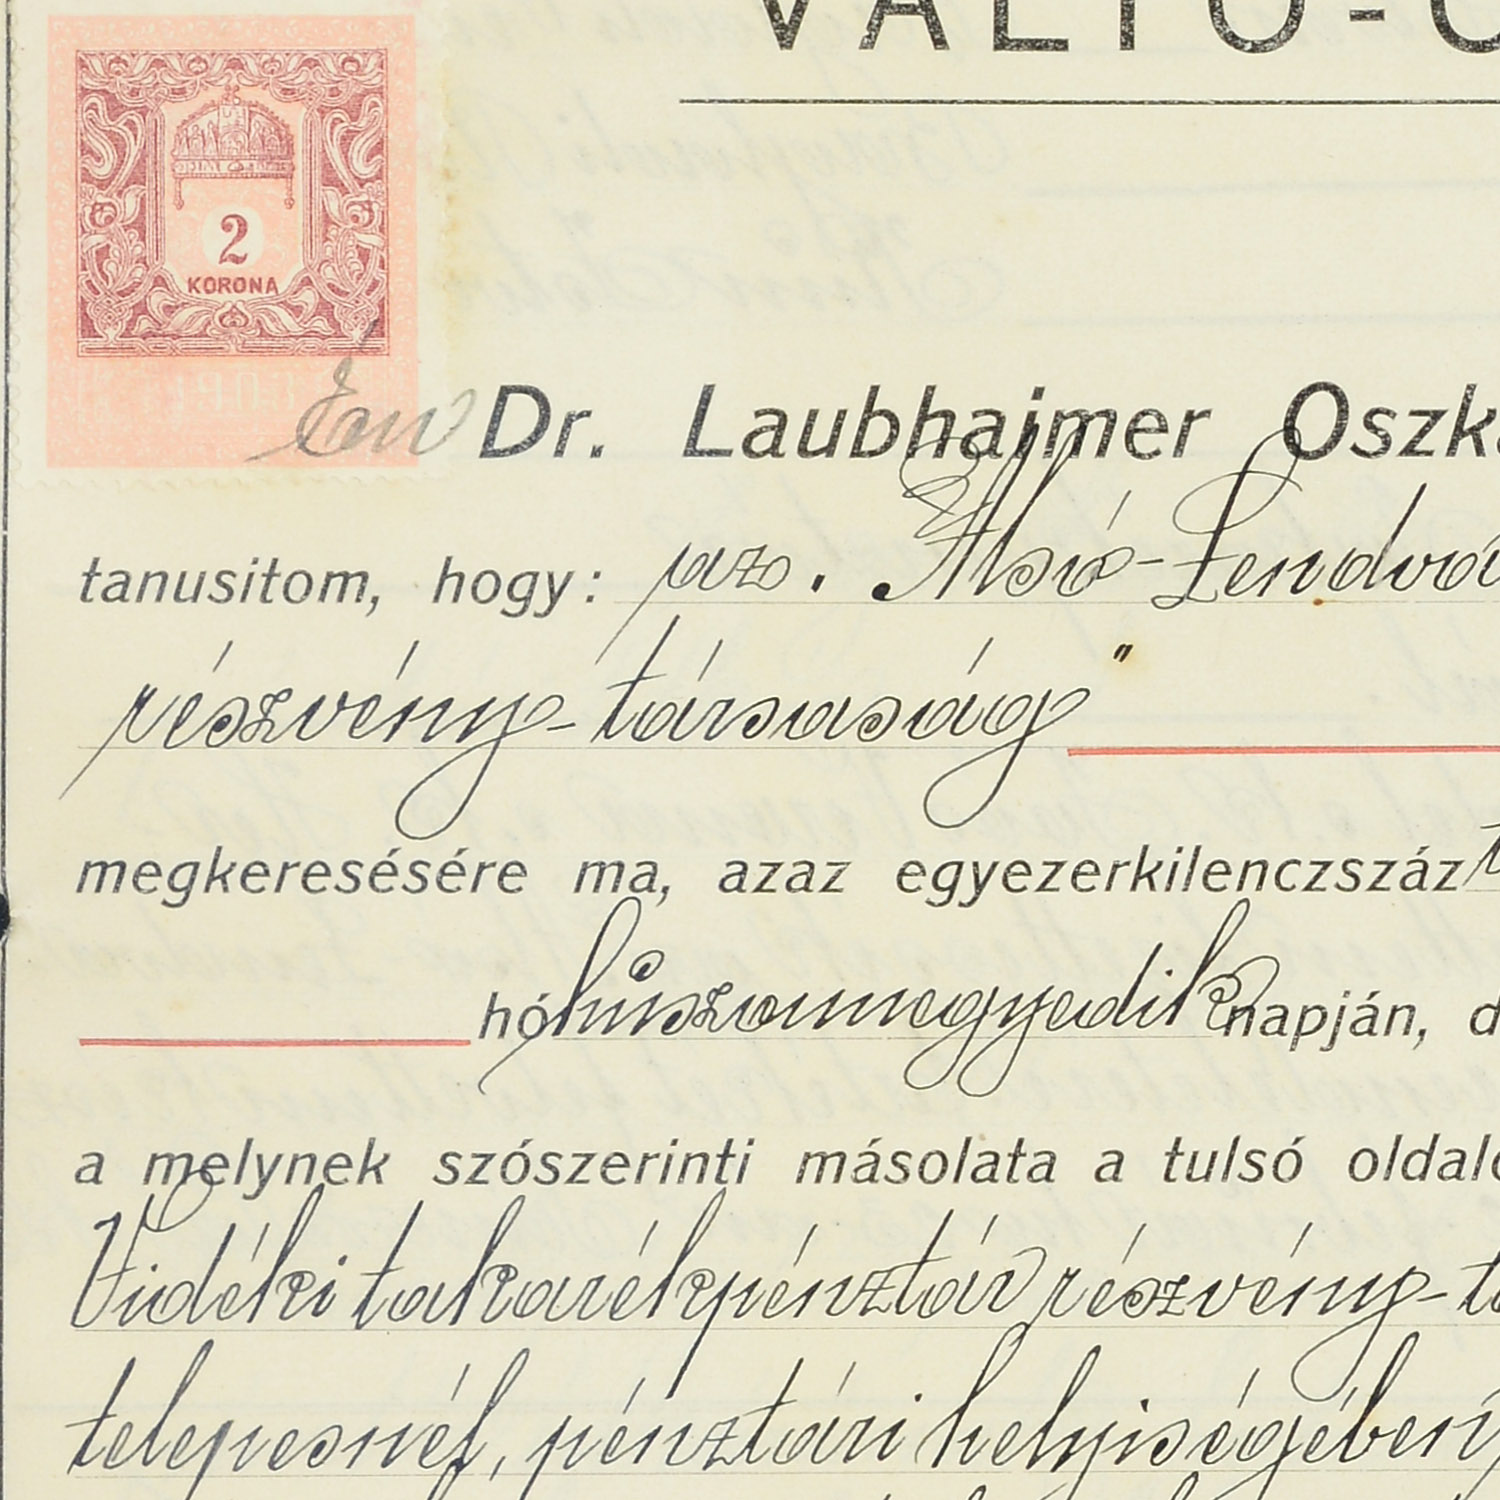 VÁLTÓ-Ó
2
KORONA
1903
Én Dr. Laubhaimer Oszká
tanusitom, hogy: az. Alsó-Lendva
részvény-társaság"
megkeresésére ma, azaz egyezerkilenczszáz
hó húszonnegyedik napján, d
a melynek szószerinti másolata a tulsó oldalo
Vidéki takarékpénztár részvény-tá
telepesnél, pénztári helyiségében